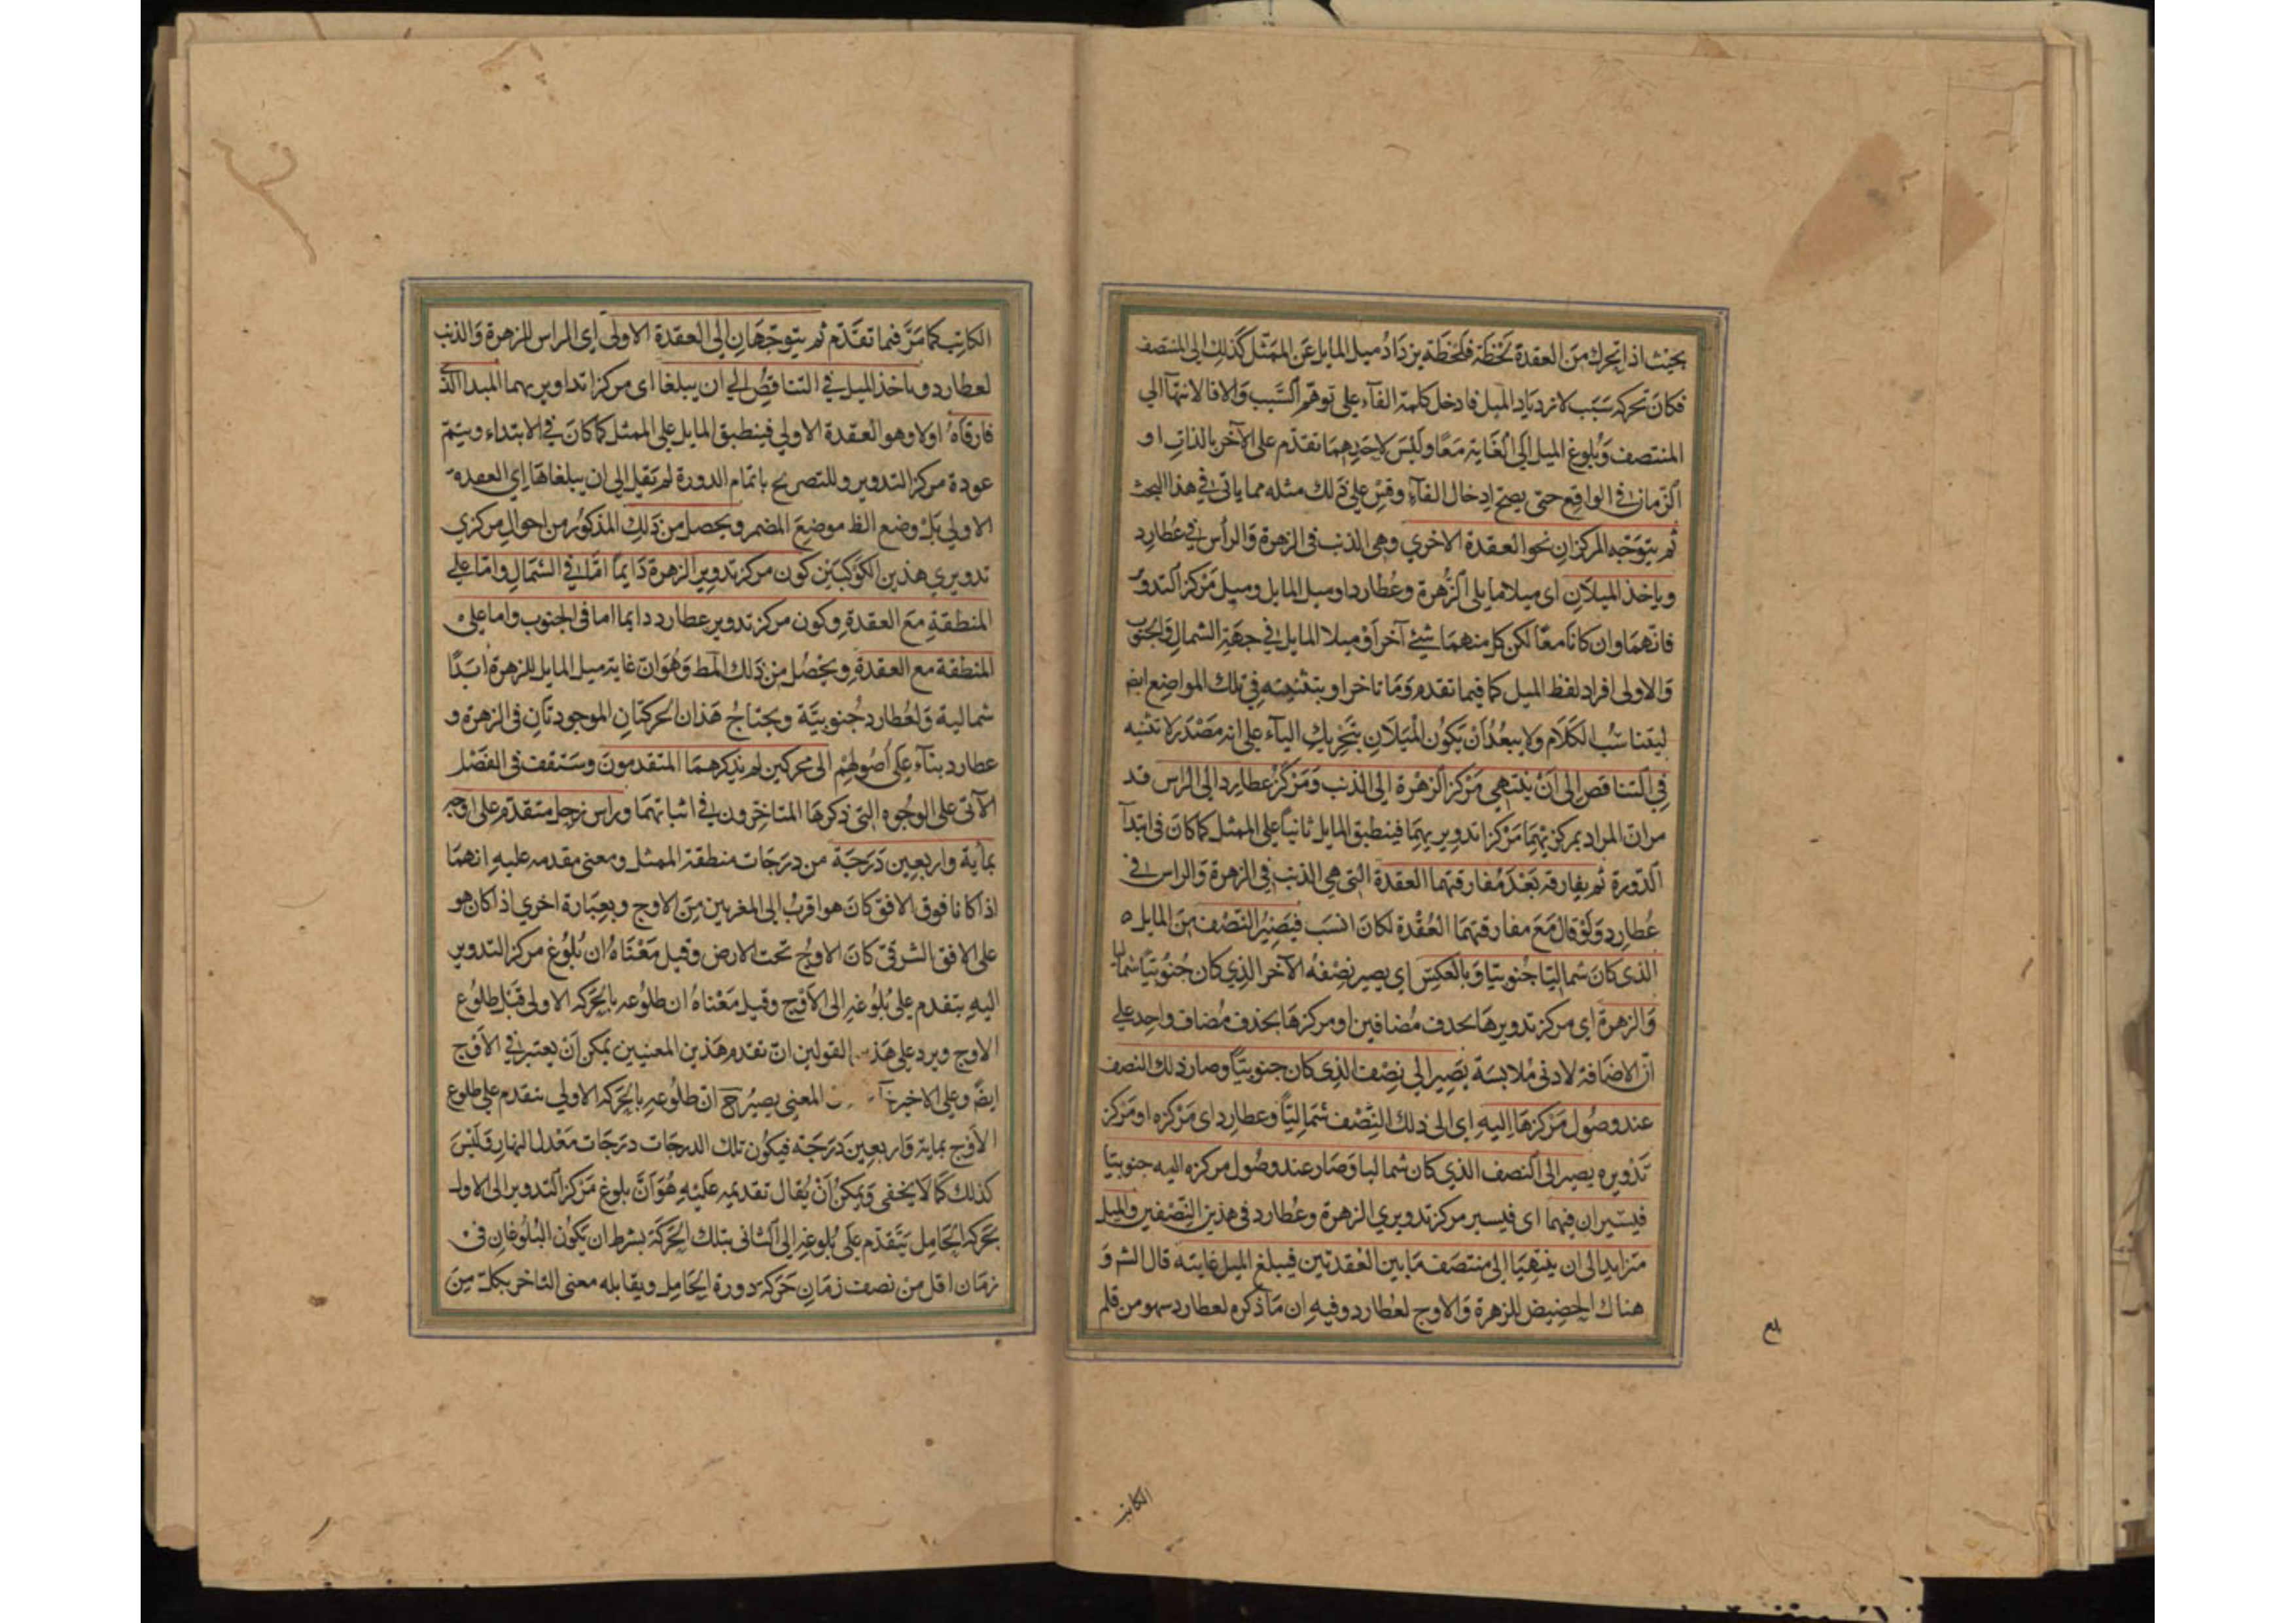 بحيث اذا تحرك من العقدة لحظة فلحظة يزداد ميل المايل عن الممثل كذلك الى المنتصف
فكان تحركه سبب لازدياد الميل فادخل كلمة الفآء على توهم السبب والا فالانتهآ الي
المنتصف وبلوغ الميل الى الغاية معا وليس لاحديهما تقدم على الآخر بالذات او
الزمان في الواقع حتى يصح ادخال الفآء وقس على ذلك مثله مما ياتى في هذا البحث
ثم يتوجه المركزان نحو العقدة الاخري وهى الذنب فى الزهرة والرأس في عطارد
وياخذ الميلان اى ميلا مايلى الزهرة وعطارد او ميل المايل وميل مركز التدوير
فانهما وان كانا معا لكن كل منهما شئ آخر او ميلا المايل في جهة الشمال والجنوب
والاولى افراد لفظ الميل كما فيما تقدم وما تاخر او بتثنيته في تلك المواضع ايض
ليتناسب الكلام ولا يبعد ان يكون الميلان بتحريك اليآء على انه مصدر لا تثنيه
في التناقص الى ان ينتهي مركز الزهرة الى الذنب ومركز عطارد الى الراس قد
مر ان المراد بمركزيهما مركزا تدويريهما فينطبق المايل ثانيا على الممثل كما كان فى ابتدآ
الدورة ثم يفارقه بعد مفارقتهما العقدة التى هي الذنب في الزهرة والراس في
عطارد ولو قال مع مفارقتهما العقدة لكان انسب فيصير النصف من المايل
الذى كان شماليا جنوبيا وبالعكس اي يصير نصفه الآخر الذي كان جنوبيا شماليا
والزهرة اى مركز تدويرها بحذف مضافين او مركزها بحذف مضاف واحد على
ان الاضافة لادنى ملابسة يصير الى نصف الذى كان جنوبيا وصار ذلك النصف
عند وصول مركزها اليه اى الى ذلك النصف شماليا وعطارد اى مركزه او مركز
تدويره يصير الى النصف الذي كان شماليا وصار عند وصول مركزه اليه جنوبيا
فيسيران فيهما اى فيسير مركز تدويري الزهرة وعطارد فى هذين النصفين والميل
متزايد الى ان ينتهيا الى منتصف ما بين العقدتين فيبلغ الميل غايته قال الشر و
هناك الحضيض للزهرة والاوج لعطارد وفيه ان ما ذكره لعطارد سهو من قلم
الكاتب
الكاتب كما مر فيما تقدم ثم يتوجهان الى العقدة الاولى اى الراس للزهرة والذنب
لعطارد وياخذ الميل في التناقص الي ان يبلغا اى مركزا تداويريهما المبدا الذى
فارقاه اولا وهو العقدة الاولي فينطبق المايل على الممثل كما كان في الابتداء ويتم
عودة مركز التدوير وللتصريح باتمام الدورة لم يقل الى ان يبلغاها اي العقدة
الاولي بل وضع الظ موضع المضمر ويحصل من ذلك المذكور من احوال مركزي
تدويري هذين الكوكبين كون مركز تدوير الزهرة دايما اما في الشمال واما على
المنطقة مع العقدة وكون مركز تدوير عطارد دايما اما فى الجنوب واما على
المنطقة مع العقدة ويحصل من ذلك المط وهو ان غاية ميل المايل للزهرة ابدا
شمالية ولعطارد جنوبية ويحتاج هذان الحركتان الموجودتان فى الزهرة و
عطارد بناء على اصولهم الى محركين لم يذكرهما المتقدمون وستقف فى الفصل
الآتى على الوجوه التى ذكرها المتاخرون في اثباتهما وراس زحل متقدم على اوجه
بماية واربعين درجة من درجات منطقة الممثل ومعنى مقدمه عليه انهما
اذا كانا فوق الافق كان هو اقرب الى المغربين من الاوج وبعبارة اخري اذا كان هو
على الافق الشرقى كان الاوج تحت الارض وقيل معناه ان بلوغ مركز التدوير
اليه يتقدم على بلوغه الى الاوج وقيل معناه ان طلوعه بالحركه الاولى قبل طلوع
الاوج ويرد على القولين ان تقدم هذين المعنيين يمكن ان يعتبر في الاوج
ايضا وعلى الاخير المعنى يصير ح ان طلوعه بالحركه الاولي يتقدم على طلوع
الاوج بماية واربعين درجة فيكون تلك الدرجات درجات معدل النهار وليس
كذلك كما لا يخفى ويمكن ان يقال تقديمه عليه هو ان بلوغ مركز التدوير الى الاول
بحركه الحامل يتقدم على بلوغه الى الثانى بتلك الحركة بشرط ان يكون البلوغان فى
زمان اقل من نصف زمان حركة دورة الحامل ويقابله معنى التاخر بكل من